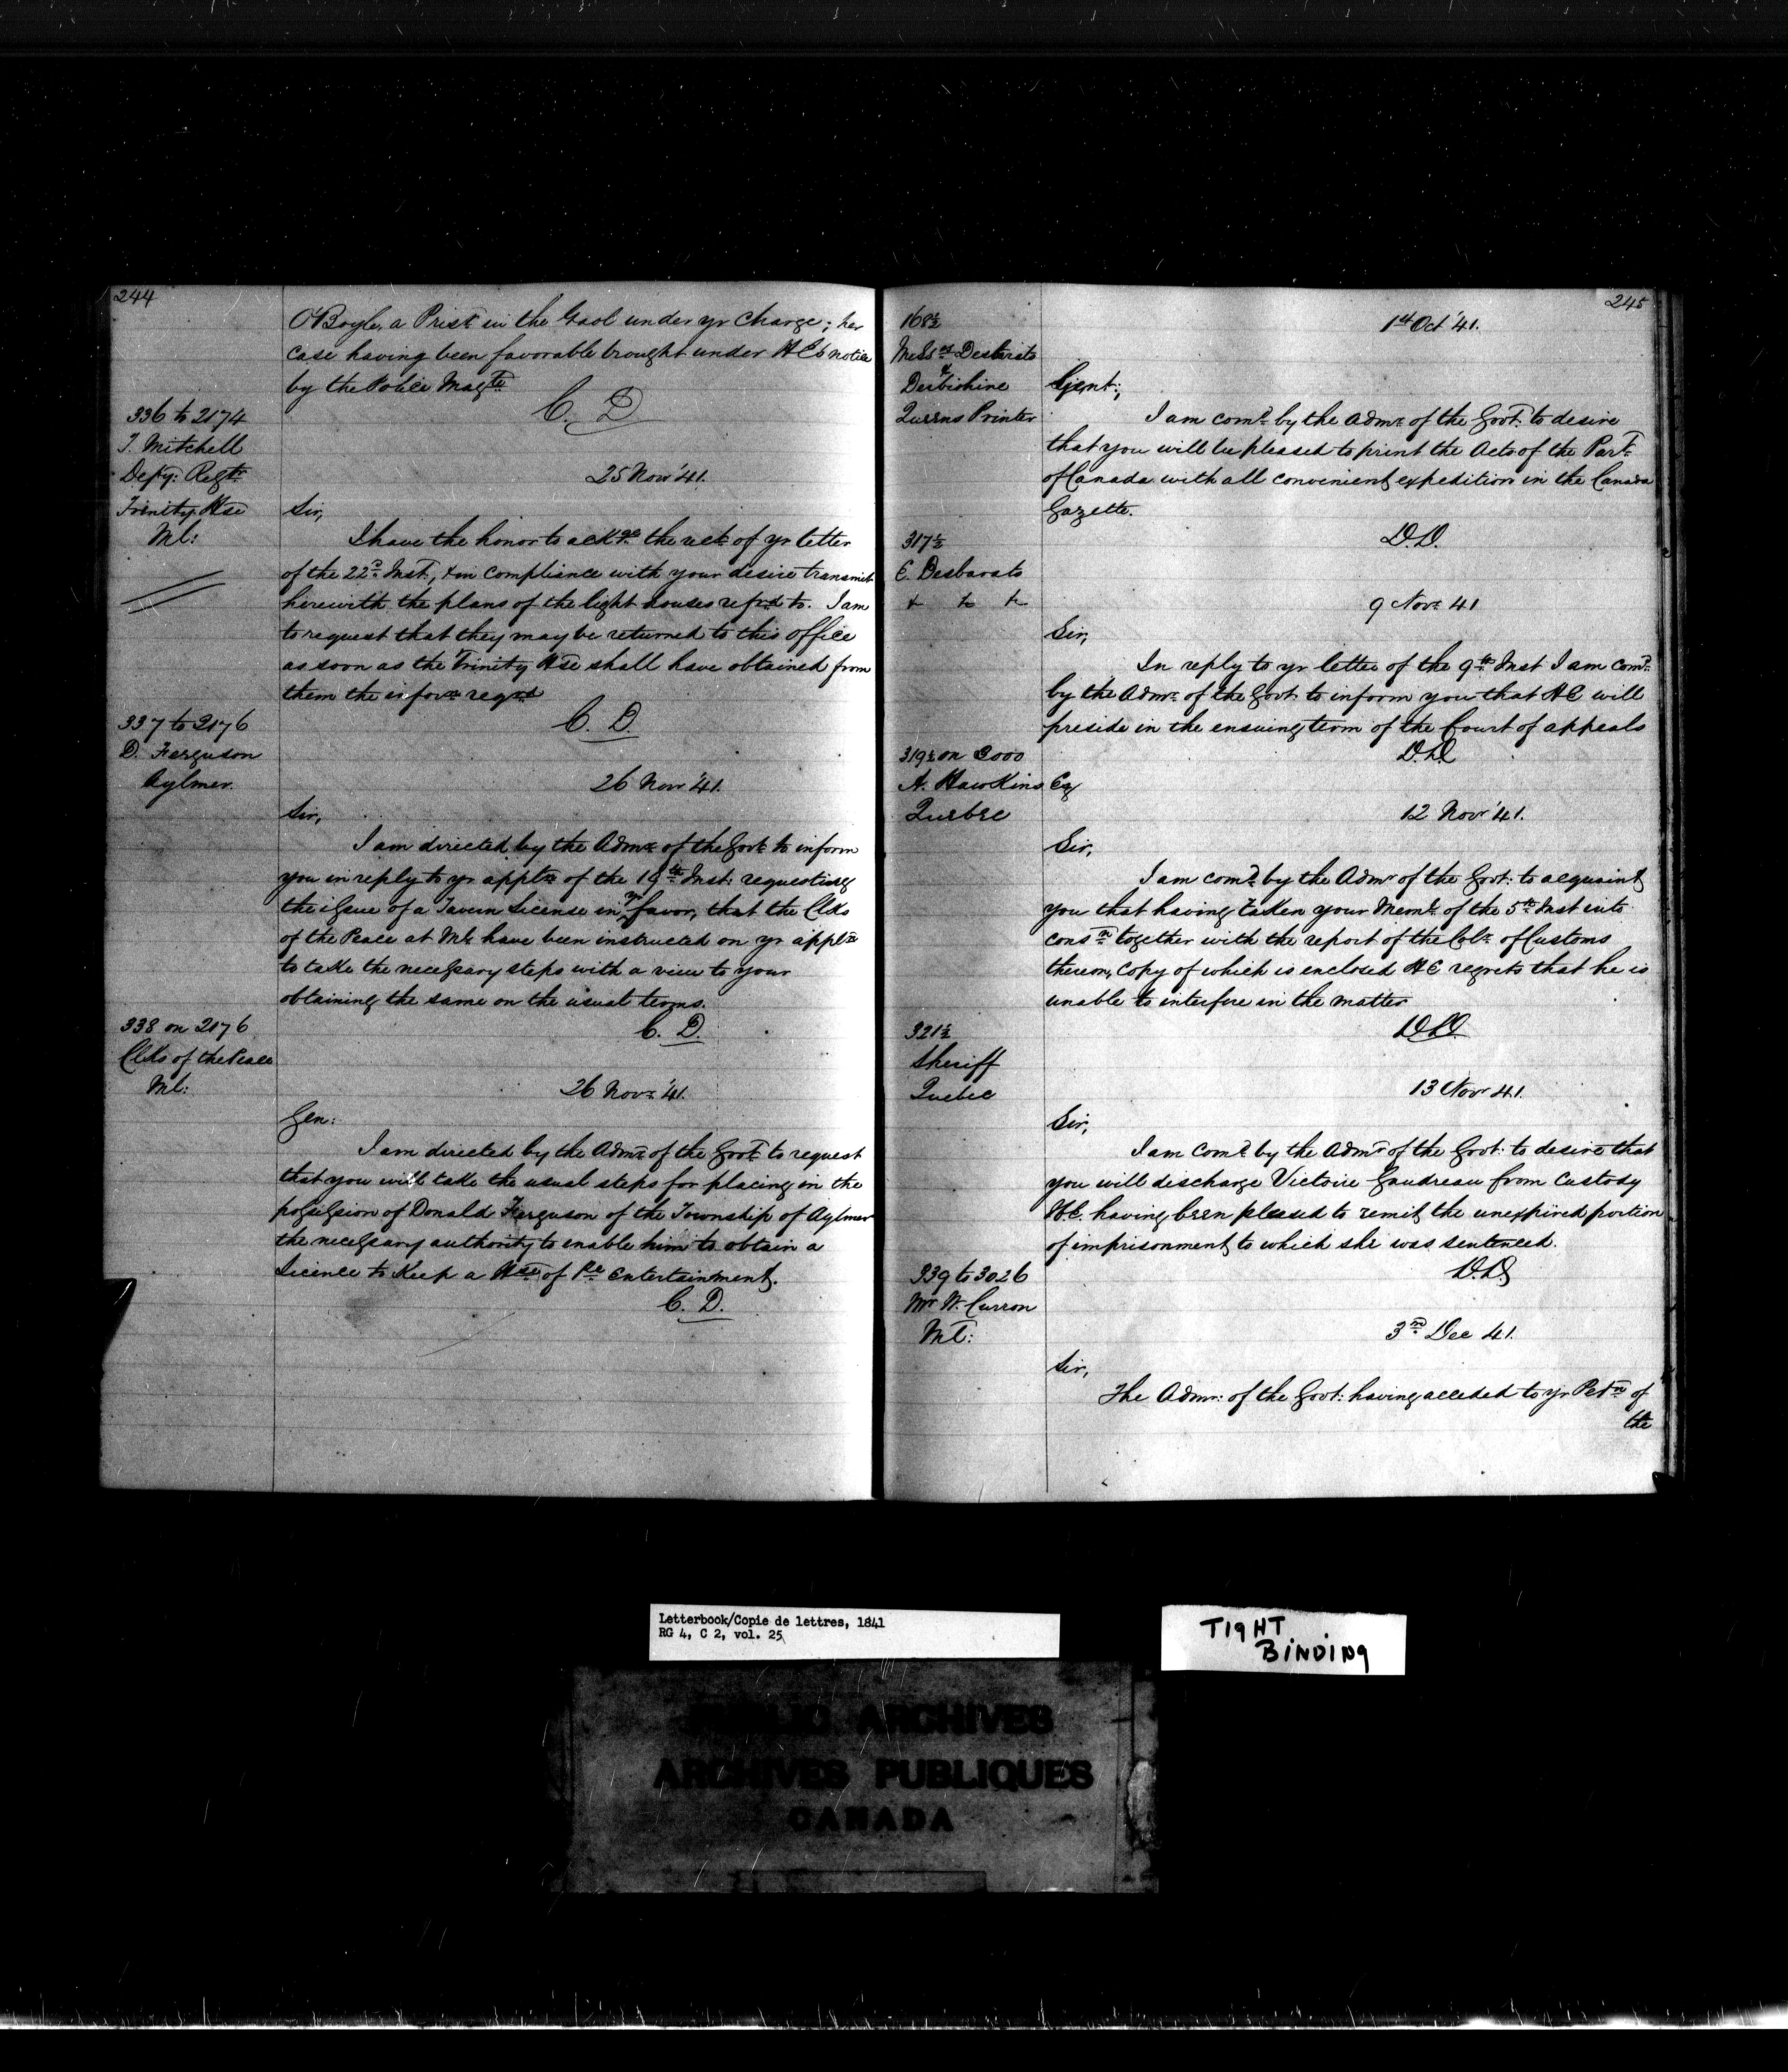 244
O'Boyle, a Prisr in the Gaol under yr charge; her
case having been favorable brought under H Es notice
by the Police Magte
C. D
336 to 2174
T. Mitchell
Depy: Regtr
Trinity Hse
Ml:
25 Nov '41.
Sir,
I have the honor to ackge the rect of yr letter
of the 22d Inst, & in compliance with your desire transmit
herewith the plans of the light houses refrd to. I am
to request that they may be returned to this office
as soon as the Trinity Hse shall have obtained from
them the inforn reqrd
C. D.
337 to 2176
D. Ferguson
Aylmer
26 Nov '41.
Sir,
I am directed by the Admr of the Govt to inform
you in reply to yr appln of the 19th Inst: requesting
the issue of a Tavern License in yr favor, that the Clks
of the Peace at Ml have been instructed on yr appln
to take the necessary steps with a view to your
obtaining the same on the usual terms.
C. D.
338 on 2176
Clks of the Peace
Ml:
26 Novr '41.
Gen:
I am directed by the Admr of the Govt to request
that you will take the usual steps for placing in the
possession of Donald Ferguson of the Township of Aylmer
the necessary authority to enable him to obtain a
Licence to Keep a Hse of Pc Entertainment.
C. D.
245
168½
Messrs Desbarats
&
Derbishire
Queens Printer
1st Oct '41.
Gent:,
I am comd by the Admr of the Govt to desire
that you will be pleased to print the Acts of the Part
of Canada with all convenient expedition in the Canada
Gazette.
D.D.
317½
E. Desbarats
& & &
9 Novr 41
Sir,
In reply to yr letter of the 9th Inst I am comd
by the Admr of the Govt to inform you that HE will
preside in the ensuing term of the Court of appeals
D.D.
319½ on 3000
A. Hawkins Esq
Quebec
12 Nov '41.
Sir,
I am comd by the Admr of the Govt: to acquaint
you that having taken your Meml of the 5th Inst into
consn together with the report of the Colr of Customs
thereon, Copy of which is enclosed HE regrets that he is
unable to interfere in the matter
D.D.
321½
Sheriff
Quebec
13 Nov 41.
Sir,
I am comd by the Admr of the Govt: to desire that
you will discharge Victoire Gaudreau from Custody
H.E. having been pleased to remit the unexpired portion
of imprisonment to which she was sentenced.
D.D.
339 to 3026
Mr W. Curron
Ml:
3rd Dec 41.
Sir,
The Admr: of the Govt: having acceded to yr Petn of
the
Letterbook/Copie de lettres, 1841
RG 4, C 2, vol. 25
TIGHT
BINDING
PUBLIC ARCHIVES
ARCHIVES PUBLIQUES
CANADA